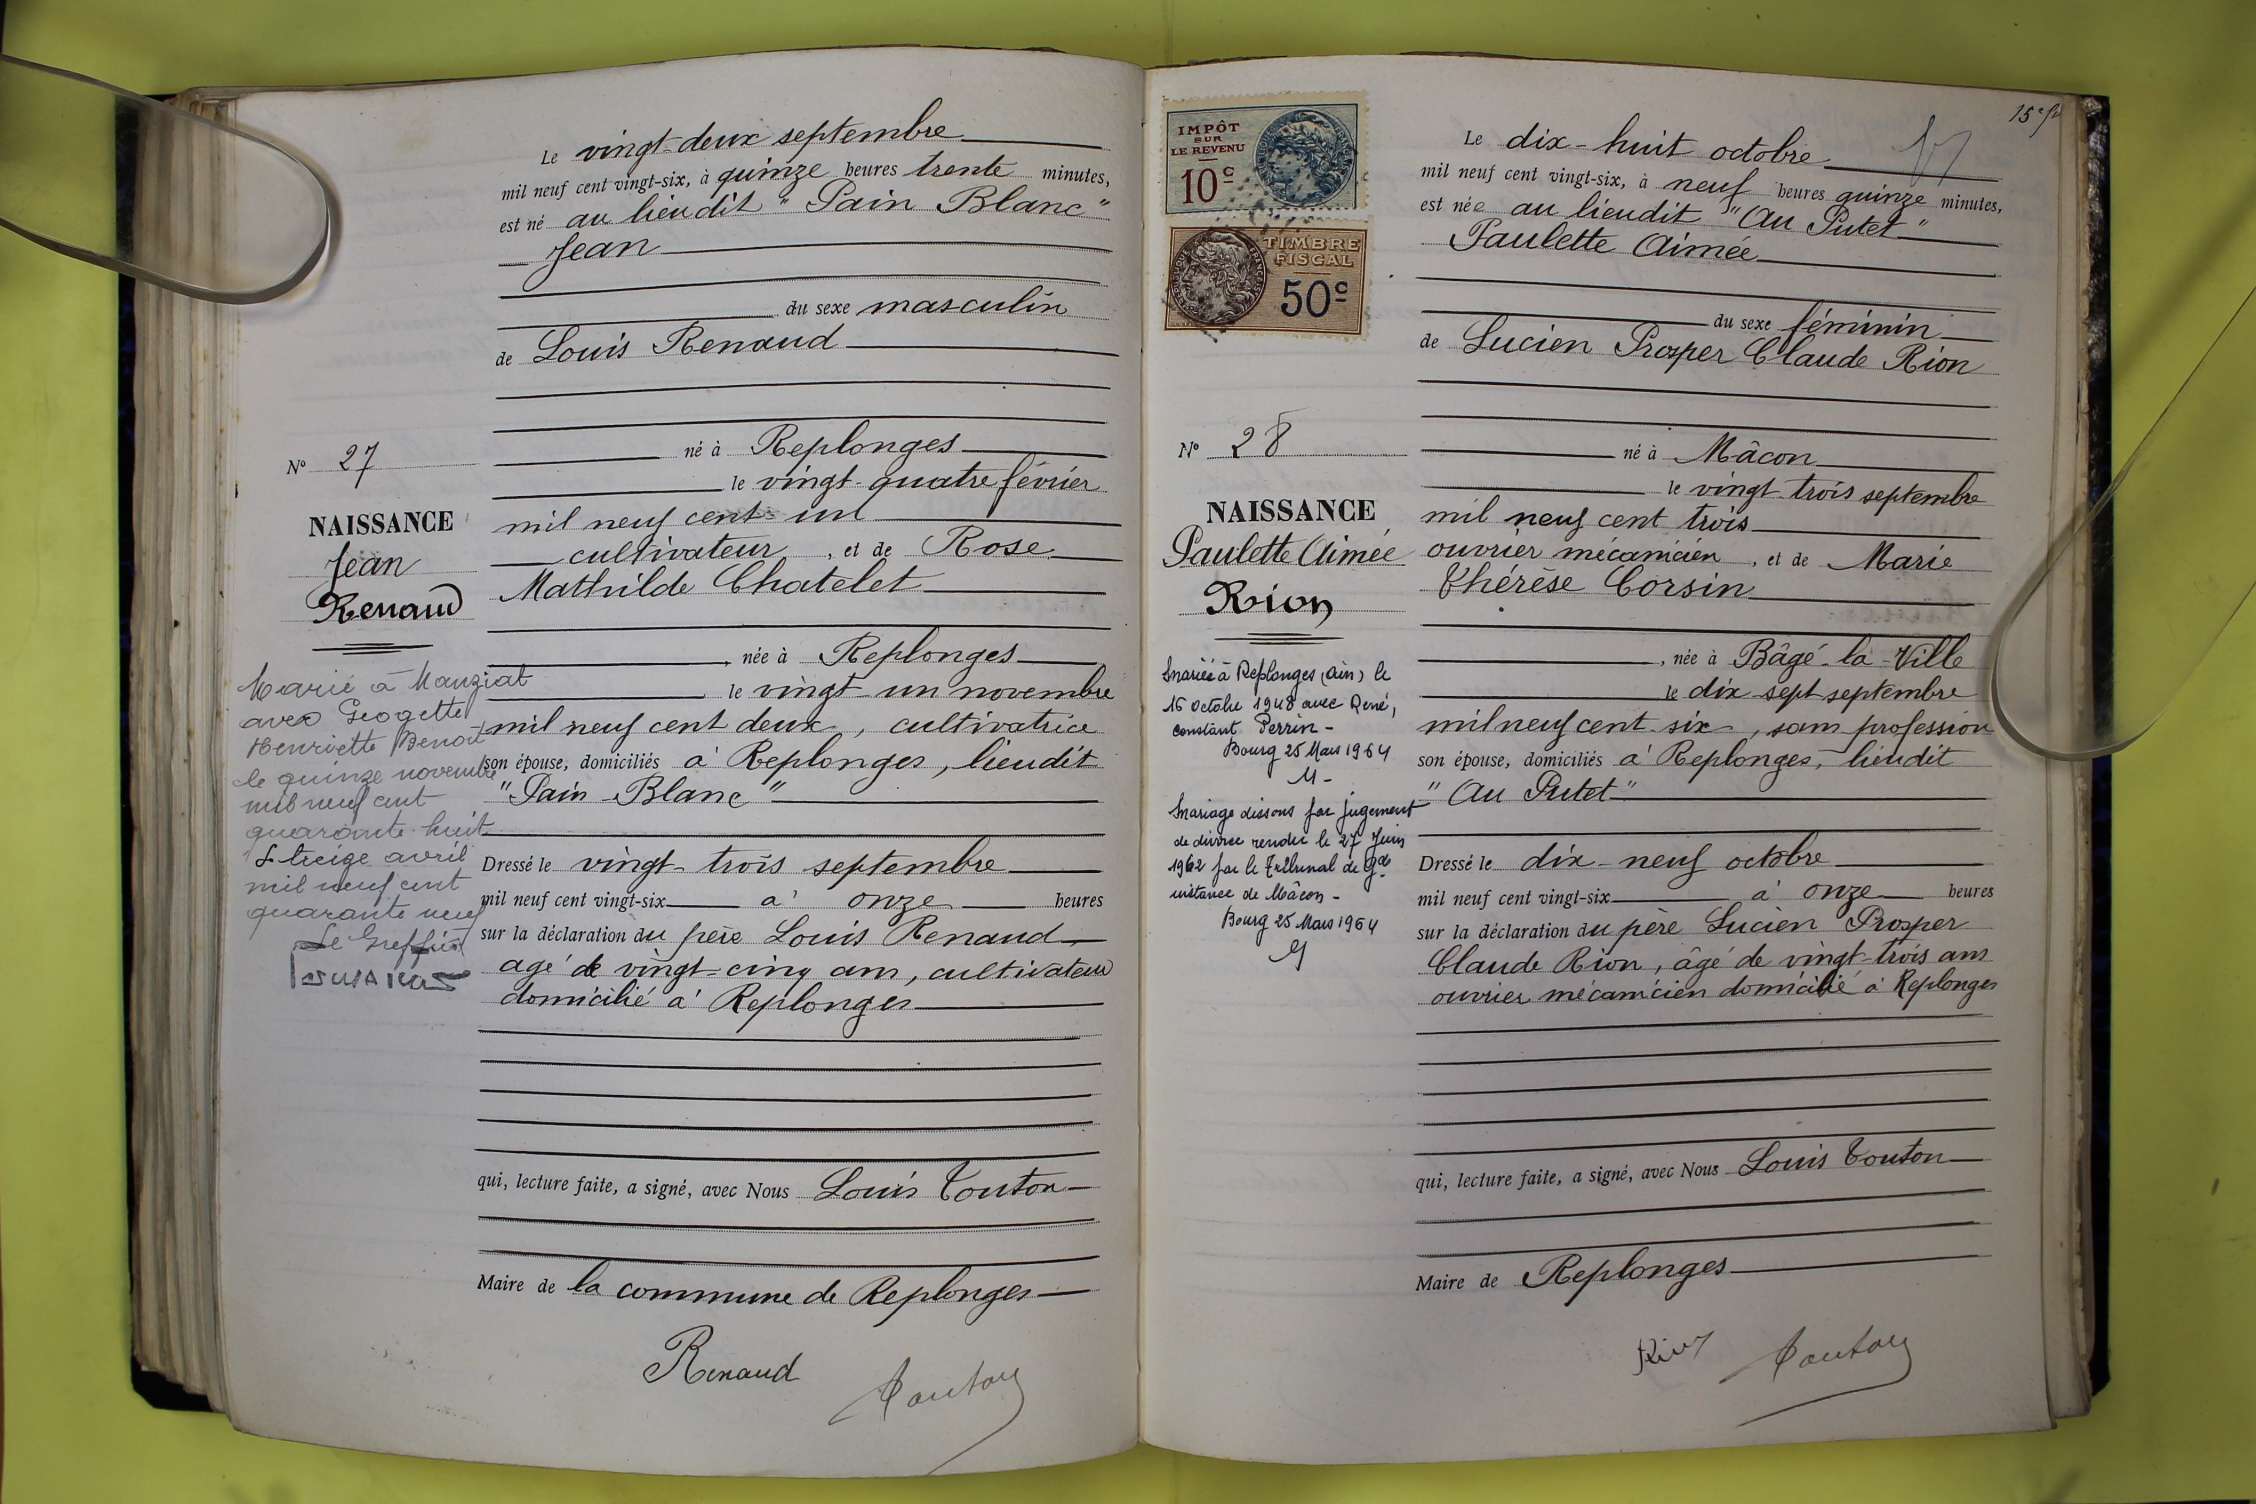 Le vingt-deux septembre
mil neuf cent vingt-six, à quinze heures trente minutes,
est né au lieudit "Pain Blanc"
Jean
du sexe masculin
de Louis Renaud
né à Replonges
le vingt-quatre février
mil neuf cent un
cultivateur, et de Rose
Mathilde Chatelet
, née à Replonges
le vingt un novembre
mil neuf cent deux, cultivatrice
son épouse, domiciliés à Replonges, lieudit
"Pain Blanc"
Dressé le vingt-trois septembre
mil neuf cent vingt-six à onze heures
sur la déclaration du père Louis Renaud
agé de vingt-cinq ans, cultivateur
domicilié à Replonges
qui, lecture faite, a signé, avec Nous Louis Touton
Maire de la commune de Replonges
Renaud
Touton
No 27
NAISSANCE
Jean
Renaud
Marié à Manziat
avec Geogette
Henriette Benoit
le quinze novembre
mil neuf cent
quarante-huit
treize avril
mil neuf cent
quarante neuf
Le Greffier
15e
Le dix-huit octobre
mil neuf cent vingt-six, à neuf heures quinze minutes,
est née au lieudit "Au Putet"
Paulette Aimée
du sexe féminin
de Lucien Prosper Claude Rion
né à Mâcon
le vingt trois septembre
mil neuf cent trois
ouvrier mécanicien, et de Marie
Thérèse Corsin
, née à Bâgé-la-Ville
le dix sept septembre
mil neuf cent six, sans profession
son épouse, domiciliés à Replonges, lieudit
"Au Putet"
Dressé le dix-neuf octobre
mil neuf cent vingt-six à onze heures
sur la déclaration du père Lucien Prosper
Claude Rion, âgé de vingt-trois ans
ouvrier mécanicien domicilié à Replonges
qui, lecture faite, a signé, avec Nous Louis Touton
Maire de Replonges
Rion
Touton
IMPÔT
SUR
LE REVENU
10c
TIMBRE
FISCAL
50c
No 28
NAISSANCE
Paulette Aimée
Rion
Mariée à Replonges (Ain) le
16 octobre 1948 avec René,
constant Perrin -
Bourg 25 Mars 1964
Mariage dissous par jugement
de divorce rendu le 27 Juin
1962 par le Tribunal de Gde
instance de Mâcon -
Bourg 25 Mars 1964